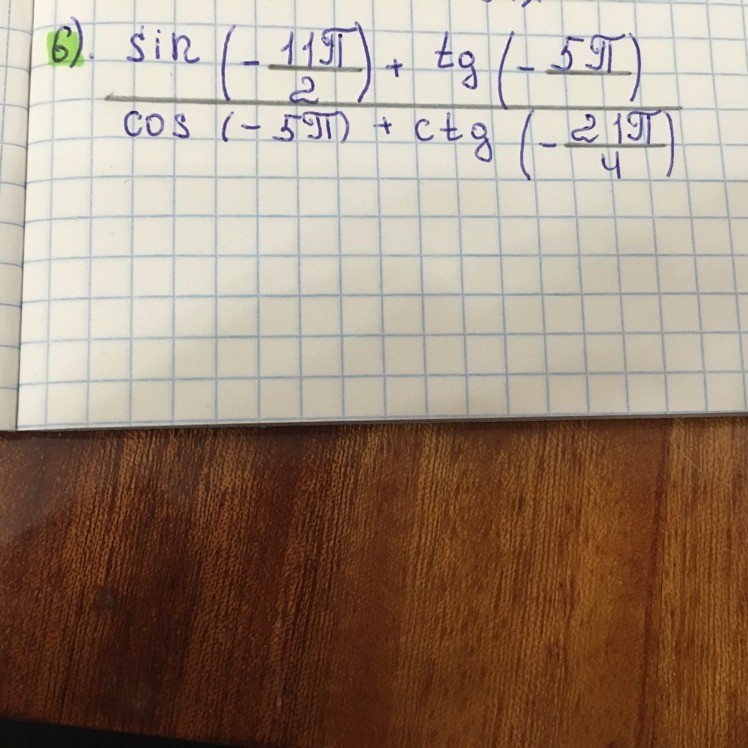 6). sin (- 11π/2) + tg (- 5π/)
cos (- 5π) + ctg (- 21π/4)